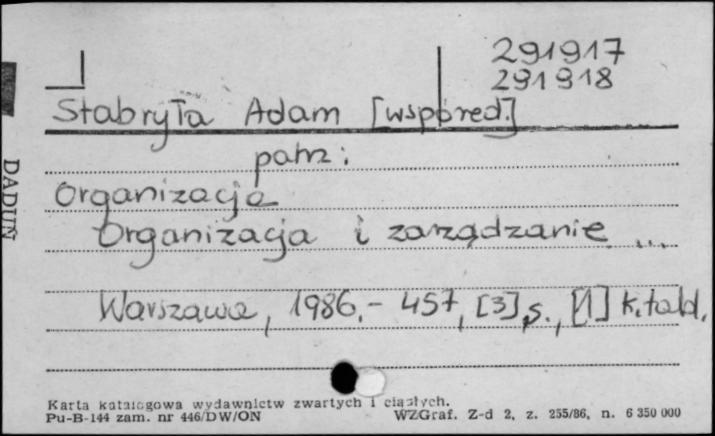 291917
291918
Stabryła Adam [współred.]
patrz:
Organizacja
Organizacja i zarządzanie ...
Warszawa, 1986.- 457, [3] s., [1] k. tabl.
DADUŃ
Karta katalogowa wydawnictw zwartych i ciągłych.
Pu-B-144 zam. nr 446/DW/ON WZGraf. Z-d 2, z. 255/86, n. 6 350 000